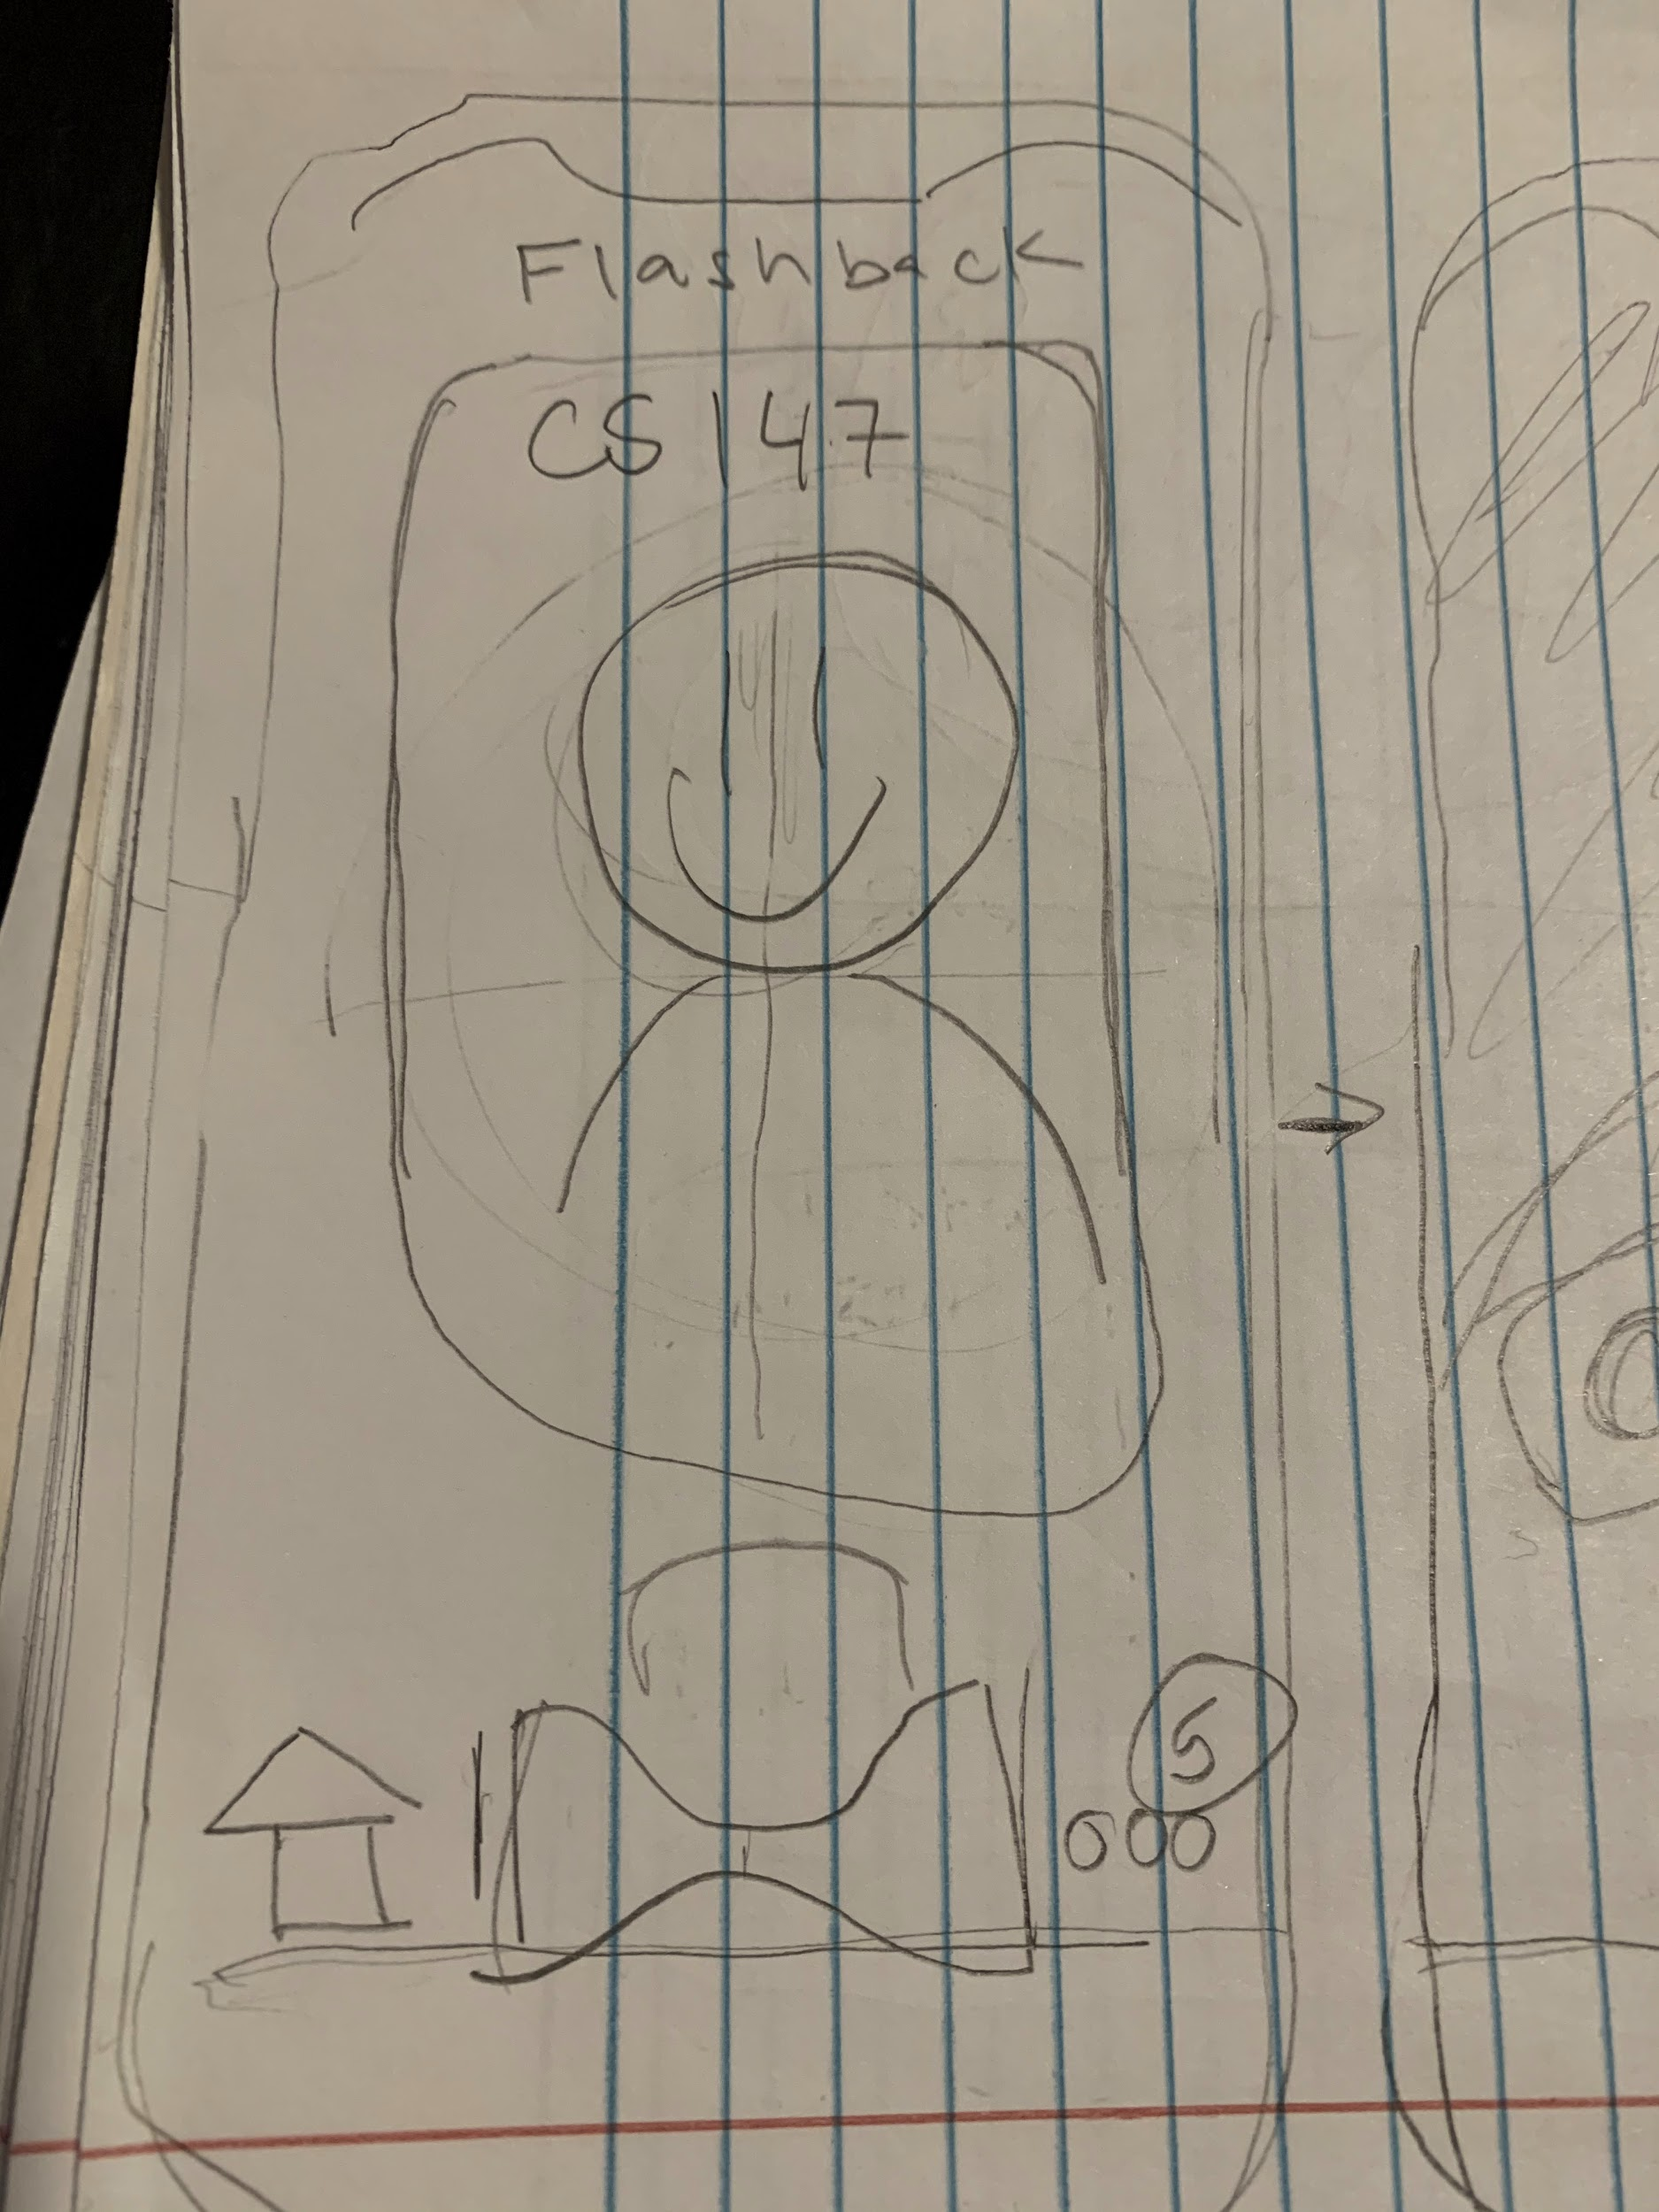 Flashback
CS 147
5